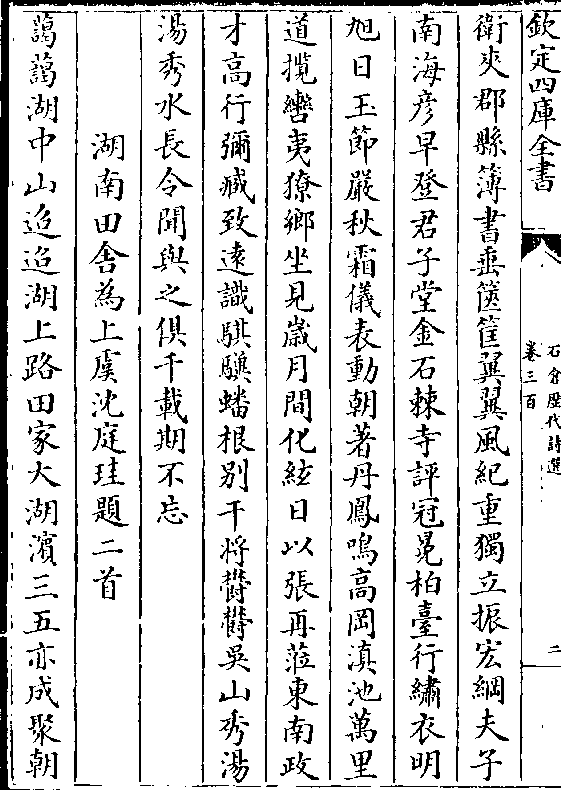 欽定四庫全書
石倉歷代詩選
卷三百
二
衛夾郡縣簿書垂篋筐翼翼風紀重獨立振宏綱夫子
南海彦早登君子堂金石棘寺評冠冕柏臺行繡衣明
旭日玉節嚴秋霜儀表動朝著丹鳳鳴高岡滇池萬里
道攬轡夷獠鄉坐見嵗月間化絃日以張再蒞東南政
才高行彌臧致遠識騏驥蟠根别干将欝欝吳山秀湯
湯秀水長令聞與之俱千載期不忘
湖南田舍為上虞沈庭珪題二首
藹藹湖中山迢迢湖上路田家大湖濱三五亦成聚朝